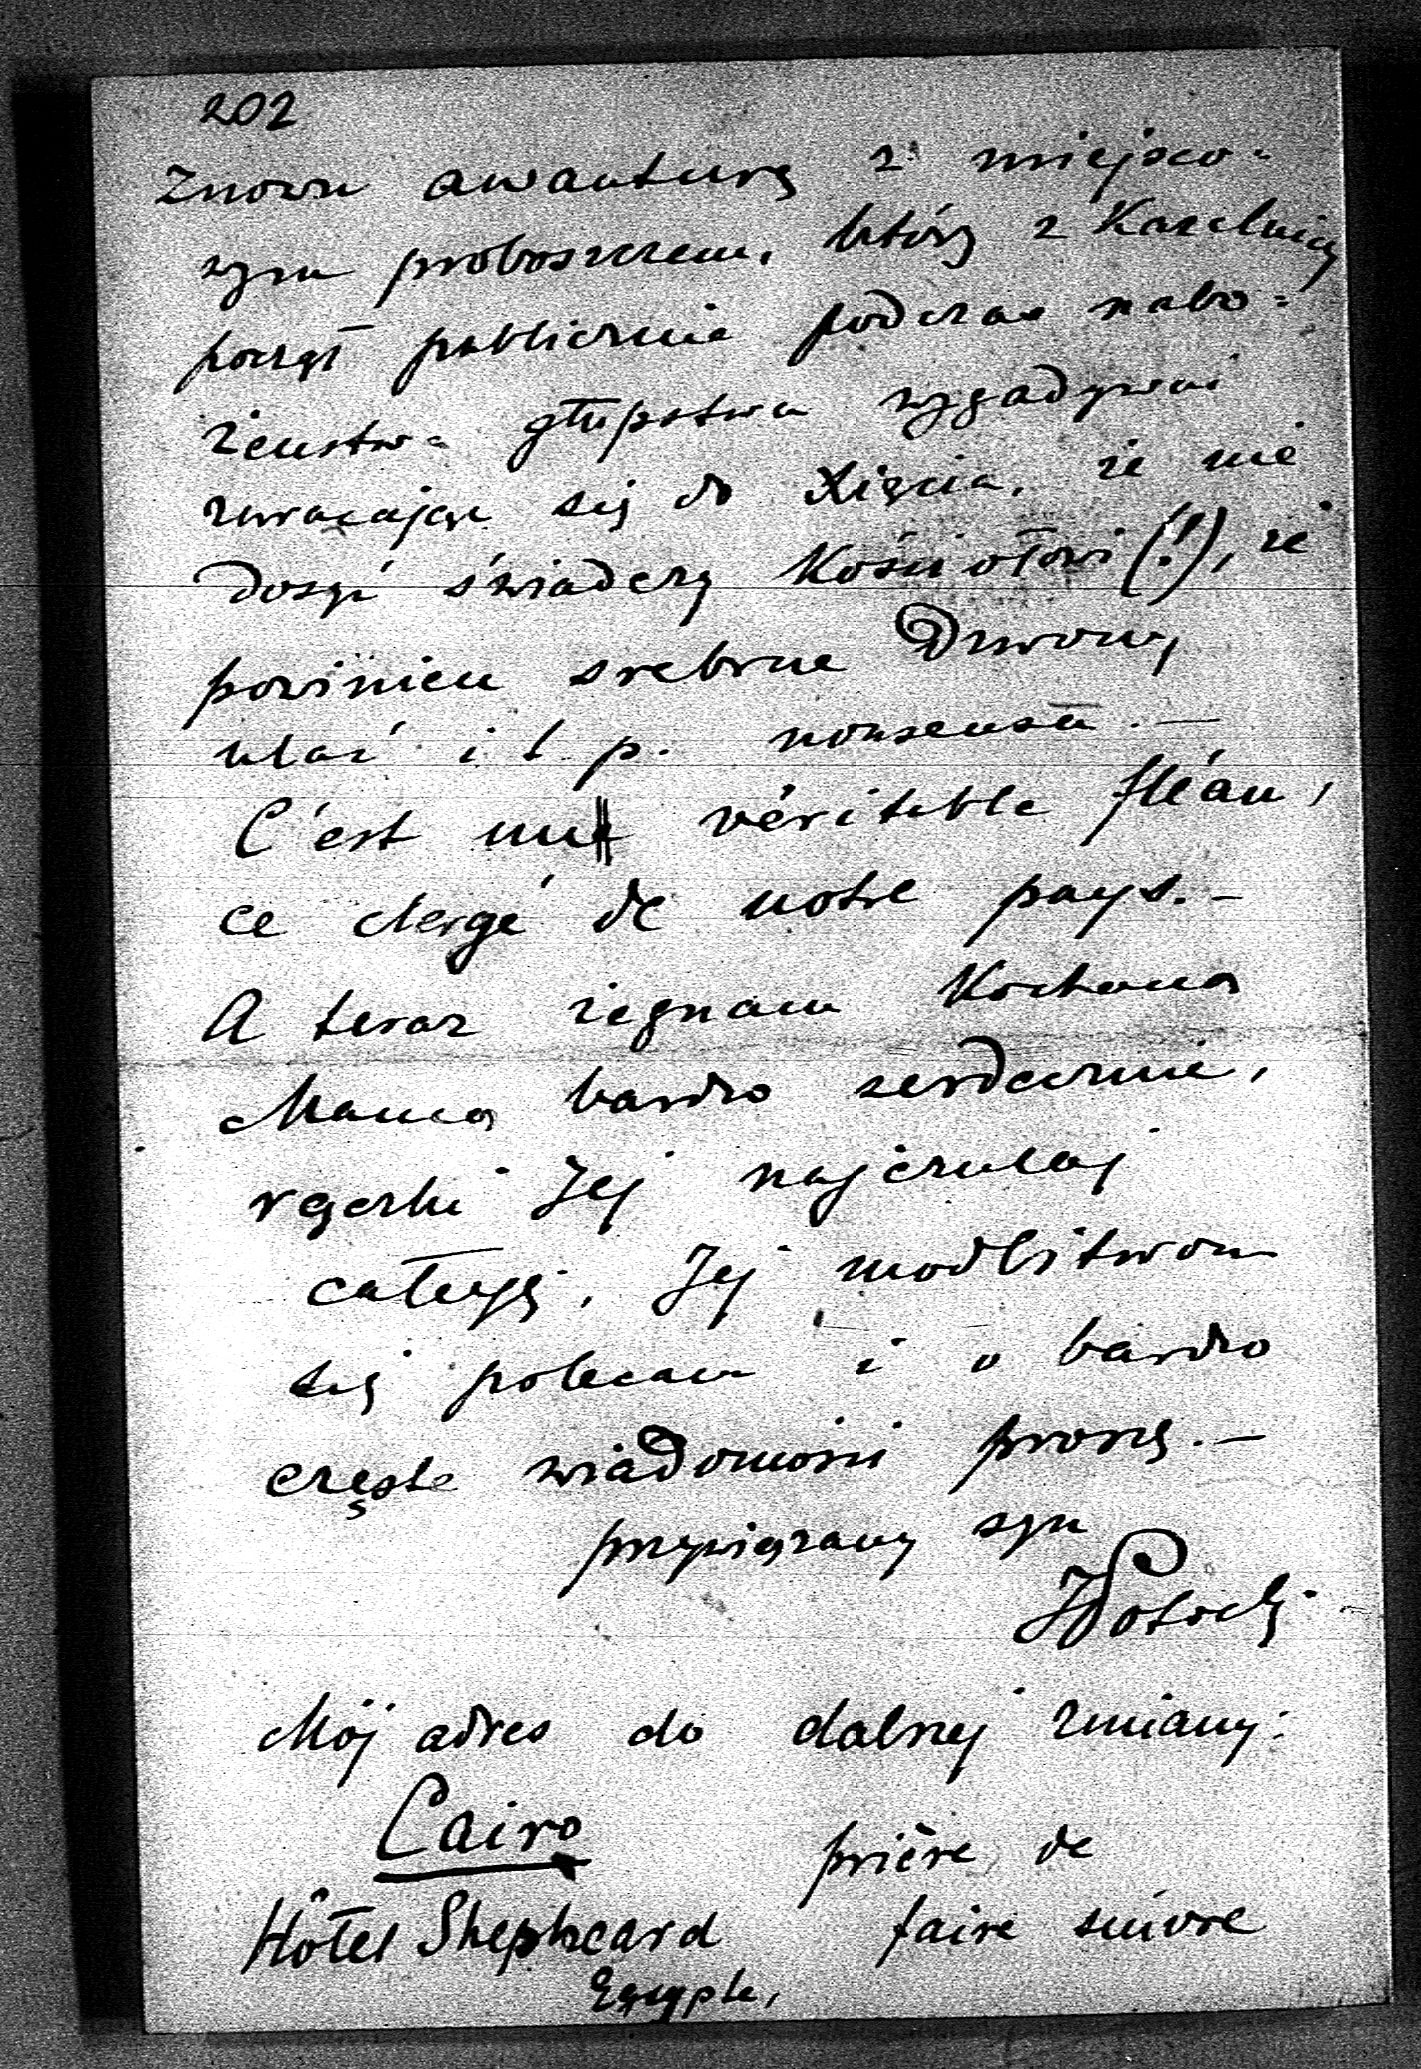 202
Znowu awanturę z miejsco-
wym proboszczem, który z Kazelnicy
począł publicznie podczas nabo-
żeństwa głupstwa wygadywać
zwracając się do Xięcia, że nie
dosyć świadczy Kościołowi (!), że
powinien srebrne Dzwony
ulać i t p. nonsensa. —
C'est un véritable fléau,
ce clergé de notre pays. —
A teraz żegnam Kochaną
Mamę bardzo serdecznie,
rączki Jej najczulej
całuję, Jej modlitwom
się polecam i o bardzo
częste wiadomości proszę. —
przywiązany syn
JPotocki
Mój adres do dalszej zmiany:
Cairo
prière de
Hôtel Shepheard faire suivre
Egypte,